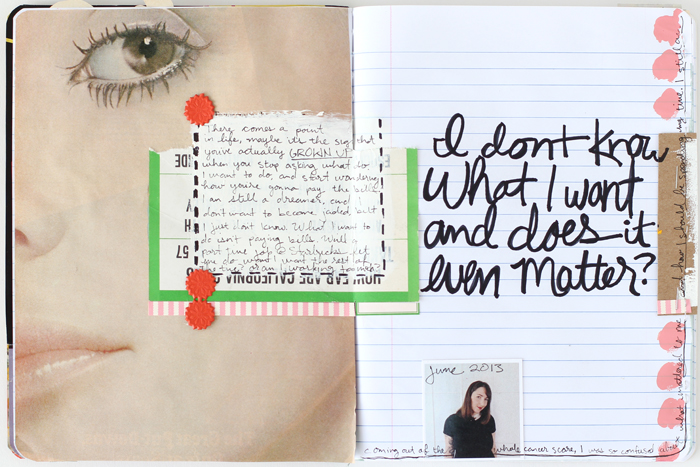 There comes a point
in life, maybe it's the sign that
you've actually GROWN UP
when you stop asking what do
I want to do, and start wondering
how you're gonna pay the bills.
I am still a dreamer, and I
don't want to become jaded, but
I just don't know. What I want to
do isn't paying bills. Will a
part time job @ Starbucks let
me do what I want the rest of
the time? or am I working
57
CALIFORNIA
I don't know
What I want
and does it
even Matter?
June 2013
coming out of the whole cancer scare, I was so confused
what mattered to me
how I should be spending my time. I still am.